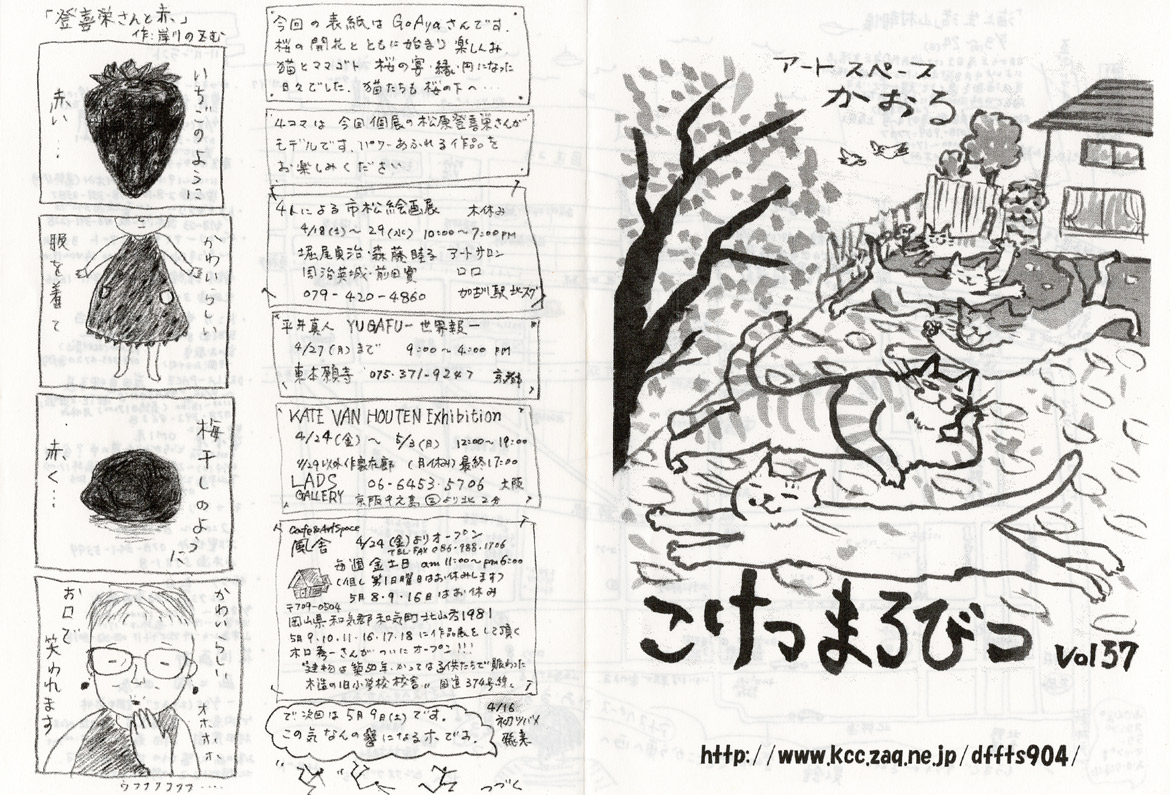 「登喜栄さんと赤、」
いちごのように
赤い…
かわいらしい
服を着て
梅干しのように
赤く…
かわいらしい
お口で
笑われます
オホホホ
ウフフフフフ....
今回の表紙は GoAyaさんです。
桜の開花とともに始まり 楽しんみ
猫とママゴト 桜の宴・縁・円になった
日々でした。猫たちも桜の下へ…
4コマは 今回個展の松原登喜栄さんが
モデルです。パワーあふれる作品を
お楽しみください
4人による市松絵画展 木休み
4/18(土)～29(水) 10:00～7:00PM
堀尾貞治・森藤晴る アートサロン
079-420-4860 加古川駅北スグ
平井真人 YUGAFU―世界報―
4/27(月)まで 9:00～4:00 PM
東本願寺 075-371-9247 京都
KATE VAN HOUTEN Exhibition
4/24(金)～ 5/3(日) 12:00～19:00
(月休み)最終17:00
LADS 06-6453-5706 大阪
GALLERY
Cafe&ArtSpace
風舎 4/24(金)よりオープン
TEL・FAX 086-988-1706
毎週金土日 am11:00～pm6:00
(但し第1日曜日はお休みします)
5月8・9・16日はお休み
〒709-0504
岡山県和気郡和気町北山方1981
5月9・10・11・16・17・18に作品展をして頂く
さんがついにオープン!!!
建物は築50年、かつては子供たちで賑わった
木造の旧小学校校舎〃 国道374号線〃
で次回は5月9日(土)です。
この気なんの響になるホです。
4/16
初ツバメ
つづく
アートスペース
かおる
こけつまろびつ
Vol 37
http://www.kcc.zaq.ne.jp/dffts904/